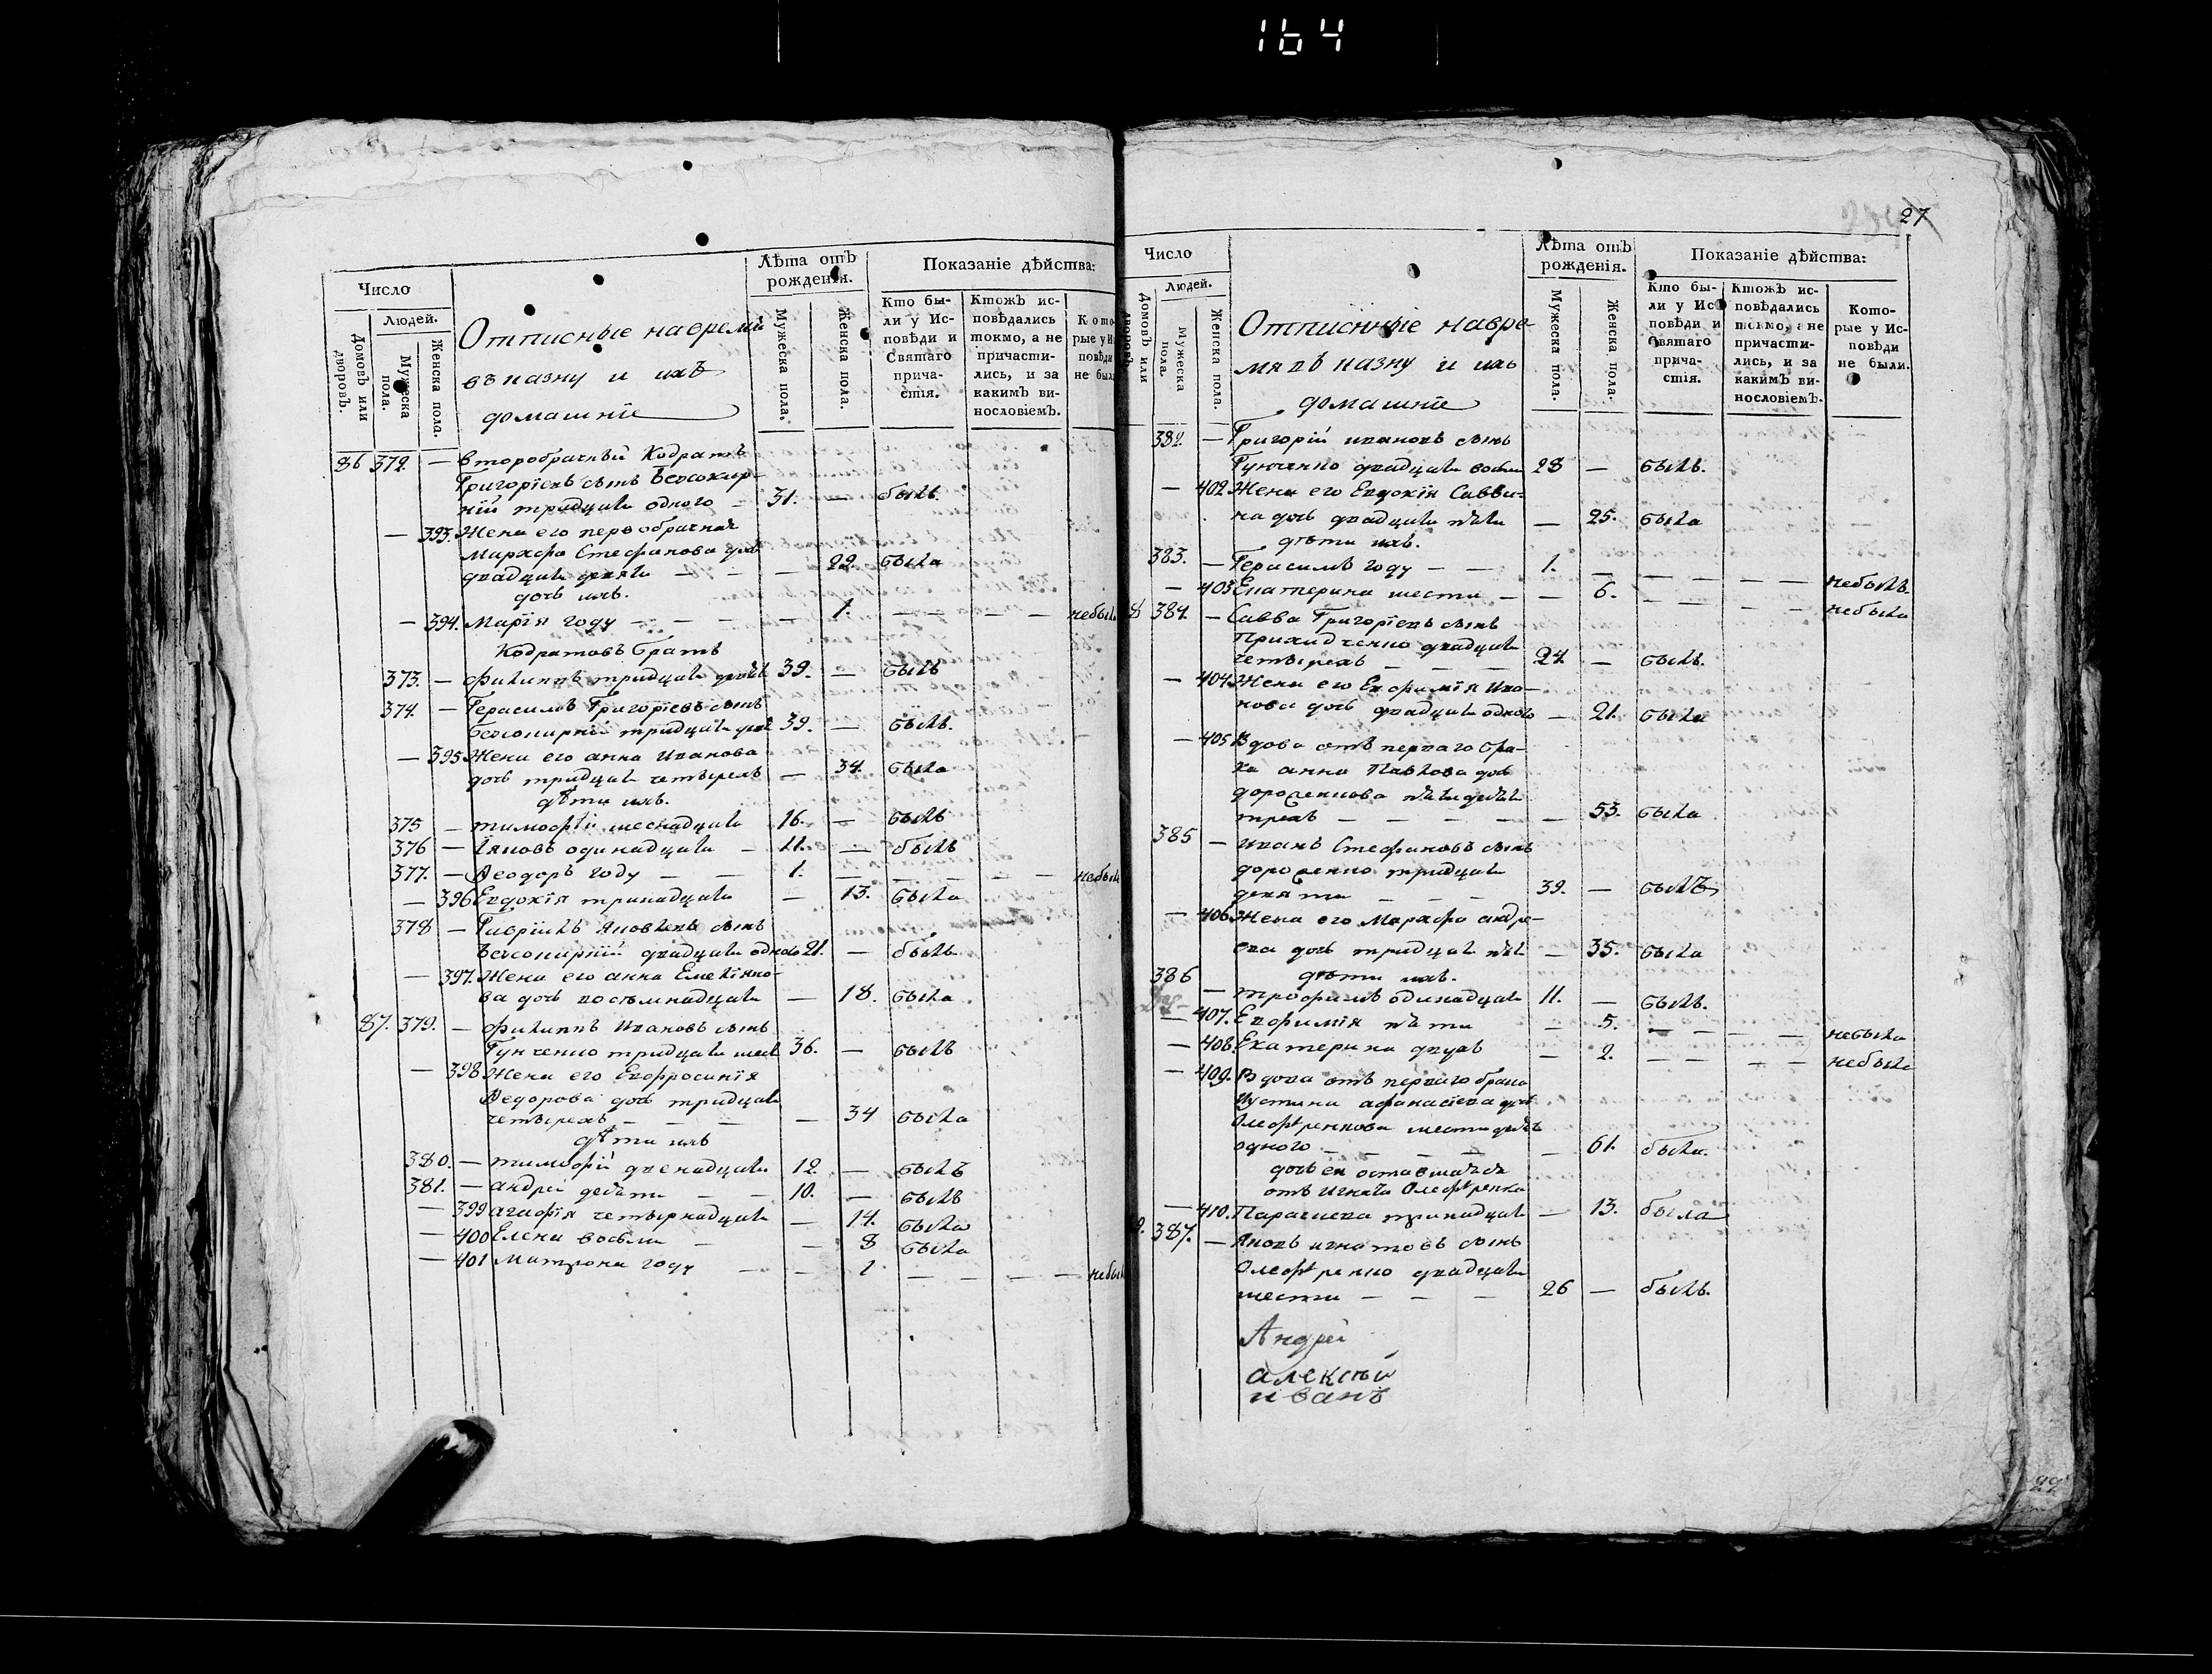 164
27
Число
Людей.
Домовъ или дворовъ.
Мужеска пола.
Женска пола.
Отписные навремя
въ казну и ихъ
домашніе
Лѣта отъ рожденія.
Мужеска пола.
Женска пола.
Показаніе дѣйства:
Кто были у Исповѣди и Святаго причастія.
Ктожъ исповѣдались токмо, а не причастились, и за какимъ винословіемъ.
86 372. — второбрачный Кодратъ
Григоріевъ сынъ
тридцати одного — 31. — былъ.
— 393. Жена его первобрачная
Марѳа Стефанова дочь
двадцати девяти — — — 29. была
дочь ихъ.
— 394. Марія году — — — — 1. — — — —
Кодратовъ братъ
373. — филиппъ тридцати 39. — былъ
374. — Герасимъ Григоріевъ сынъ
тридцати 39. — былъ.
— 395 Жена его анна Иванова
дочь тридцати четырехъ — 34. была
дѣти ихъ.
375 — тимофѣй шеснадцати 16. — былъ
376 — Іяковъ одинадцати — 11. — былъ
377. — Ѳеодоръ году — — 1. — — — — —
— 396 Евдокія тринадцати — 13. была
378 — Гавріилъ Яковлевъ сынъ
двадцати одного 21. — былъ.
— 397. Жена его анна Емеліяно-
ва дочь восемнадцати — 18. была
87. 379. — филиппъ Ивановъ сынъ
Гунченко тридцати шести 36. — былъ
— 398 Жена его Евфросинія
Ѳедорова дочь тридцати
четырехъ — — — — 34 была
дѣти ихъ
380. — тимофій двенадцати 12. — былъ
381. — андрей десяти — — 10. — былъ
— 399 агафія четырнадцати — 14. была
— 400 Елена восьми — — 8 была
— 401 Матрона году — — 1 — — — —
Число
Людей.
Домовъ или дворовъ.
Мужеска пола.
Женска пола.
Отписныіе навре-
мя въ казну и ихъ
домашніе
Лѣта отъ рожденія.
Мужеска пола.
Женска пола.
Показаніе дѣйства:
Кто были у Исповѣди и Святаго причастія.
Ктожъ исповѣдались токмо, а не причастились, и за какимъ винословіемъ.
Которые у Исповѣди не были.
382. — Григорій ивановъ сынъ
Гунченко двадцати восьми 28 — былъ.
— 402 Жена его Евдокія Савви-
на дочь двадцати пяти — 25. была
дѣти ихъ.
383. — Герасимъ году — — 1. — — — — — небылъ.
— 403 Екатерина шести — — 6. — — — — небыла
384. — Савва Григоріевъ сынъ
двадцати
четырехъ — — — 24. — былъ.
— 404 Жена его Евфимія Ива-
нова дочь двадцати одного — 21. была
— 405 Вдова отъ перваго бра-
ка анна Павлова дочь
дорошенкова пятидесяти
трехъ — — — — — 53. была
385 — иванъ Стефановъ сынъ
дорошенко тридцати
девяти — — — 39. — былъ
— 406 Жена его Марѳа андре-
ева дочь тридцати пяти — 35. была
дѣти ихъ.
386 — трофимъ одинадцати 11. — былъ.
— 407. Евфимія пяти — 5. — — — — небыла
— 408. Екатерина двухъ — 2. — — — — небыла
— 409. Вдова отъ перваго брака
Иустина афанасіева дочь
одного — — — — — 61. была.
дочь ея оставшаяся
отъ
— 410. Параскева тринадцати — 13. была
387. — Яковъ игнатовъ сынъ
двадцати
шести — — — 26 — былъ.
Андрей
алексѣй
иванъ